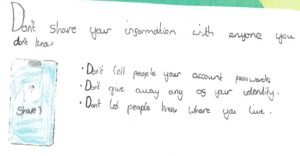 Don't share your information with anyone you
don't know
Share?
• Don't tell people your account passwords
• Don't give away any of your identity.
• Dont let people know where you live.